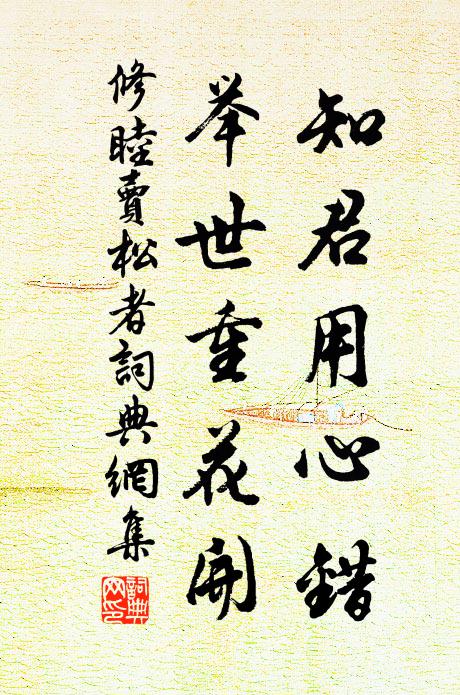 知君用心錯
举世重花開
修睦賣松者詞典網集
詞典
网印